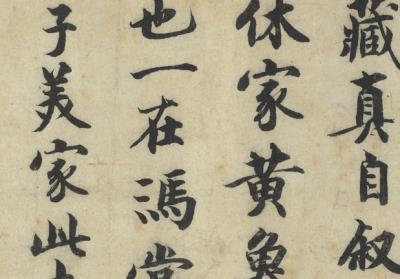 藏真自叙
休家黄魯
也一在馮當
子美家此